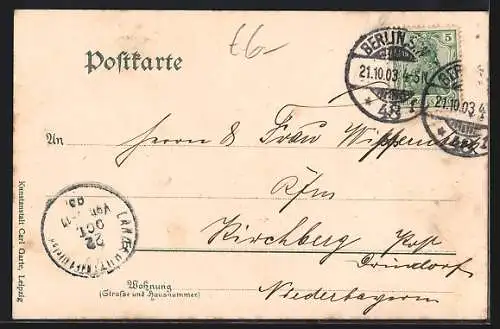 £6-
Postkarte
BERLIN S.W.
21.10.03 4-5N.
* 48 t
5
BER
21.10.03 4
An Herrn & Frau
Kfm
Kirchberg Post
Niederbayern
Wohnung
(Straße und Hausnummer)
22
OCT.
Kunstanstalt Carl Garte, Leipzig